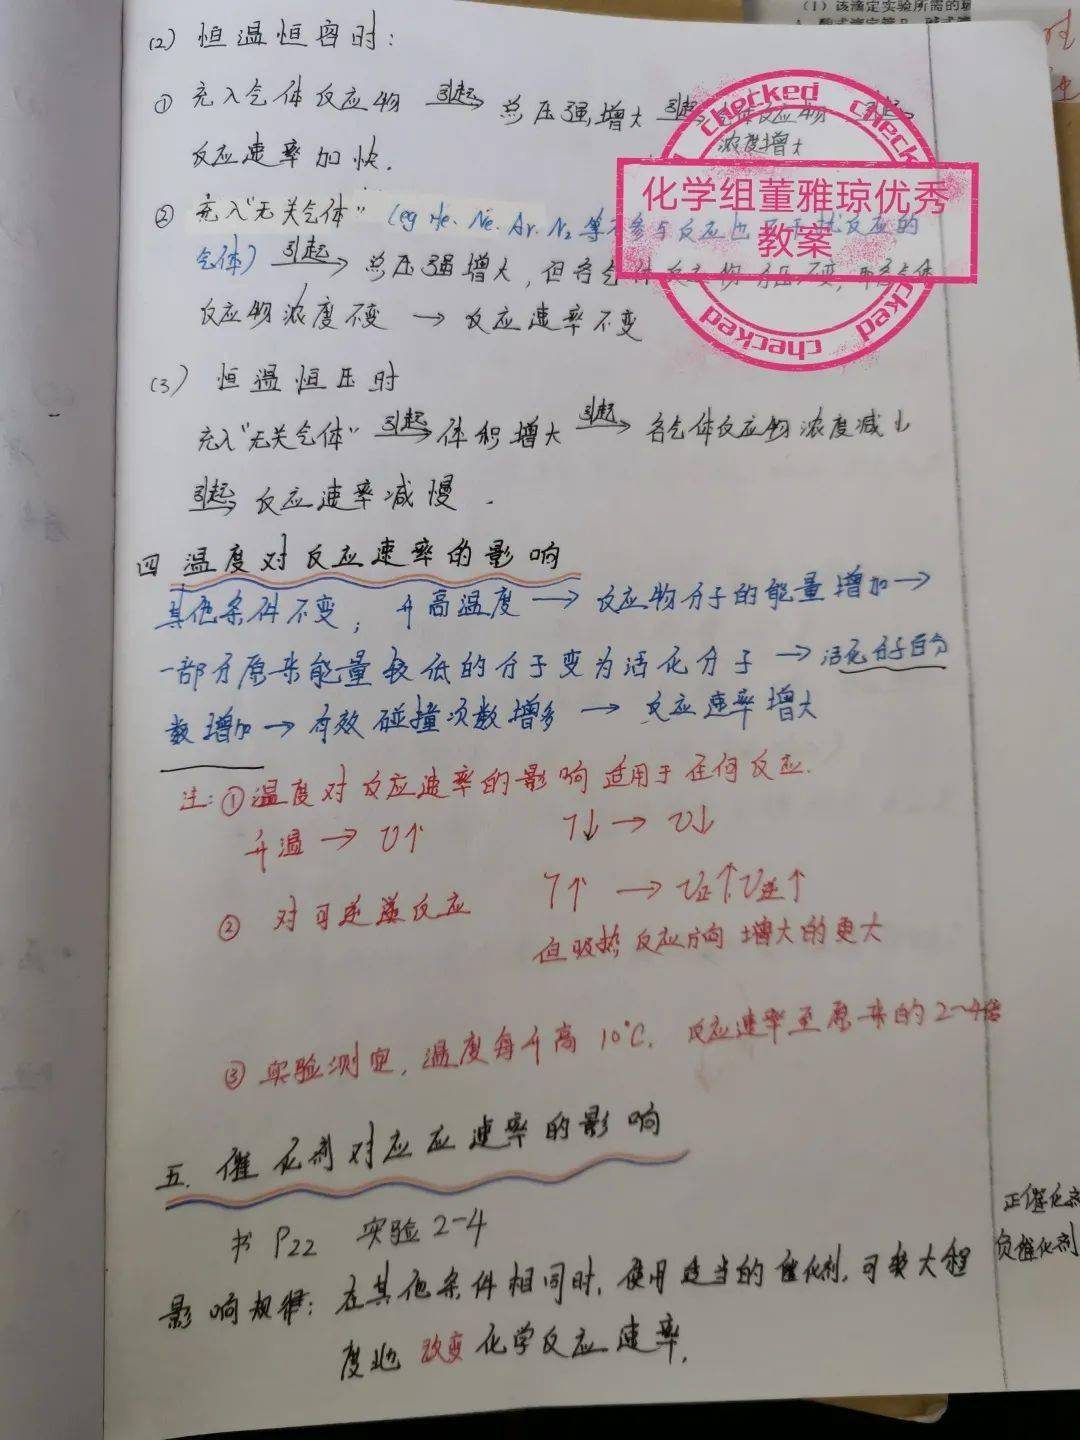 (1)该滴定实验所需的
(2) 恒温恒容时:
① 充入气体反应物 引起→ 总压强增大 引起→ 气体反应物 引起→
浓度增大
反应速率加快.
② 充入"无关气体" (eg He、Ne、Ar、N₂等不参与反应也不干扰反应的
气体) 引起→ 总压强增大, 但各气体反应物分压不变, 即各气体
反应物浓度不变 → 反应速率不变
checked checked checked checked
化学组董雅琼优秀
教案
(3) 恒温恒压时
充入"无关气体" 引起→ 体积增大 引起→ 各气体反应物浓度减小
引起→ 反应速率减慢.
四 温度对反应速率的影响
其他条件不变; 升高温度 → 反应物分子的能量增加→
一部分原来能量较低的分子变为活化分子 → 活化分子百分
数增加 → 有效碰撞次数增多 → 反应速率增大
注: ① 温度对反应速率的影响适用于任何反应.
升温 → υ↑ T↓ → υ↓
② 对可逆逆反应 T↑ → υ正↑υ逆↑
但吸热反应方向增大的更大
③ 实验测定, 温度每升高10℃, 反应速率至原来的2-4倍
五. 催化剂对应应速率的影响
书 P22 实验2-4
正催化剂
负催化剂
影响规律: 在其他条件相同时, 使用适当的催化剂, 可较大程
度地改变化学反应速率.